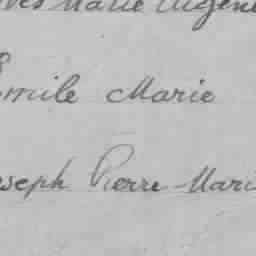 Marie Eugène
Emile Marie
Joseph Pierre-Marie